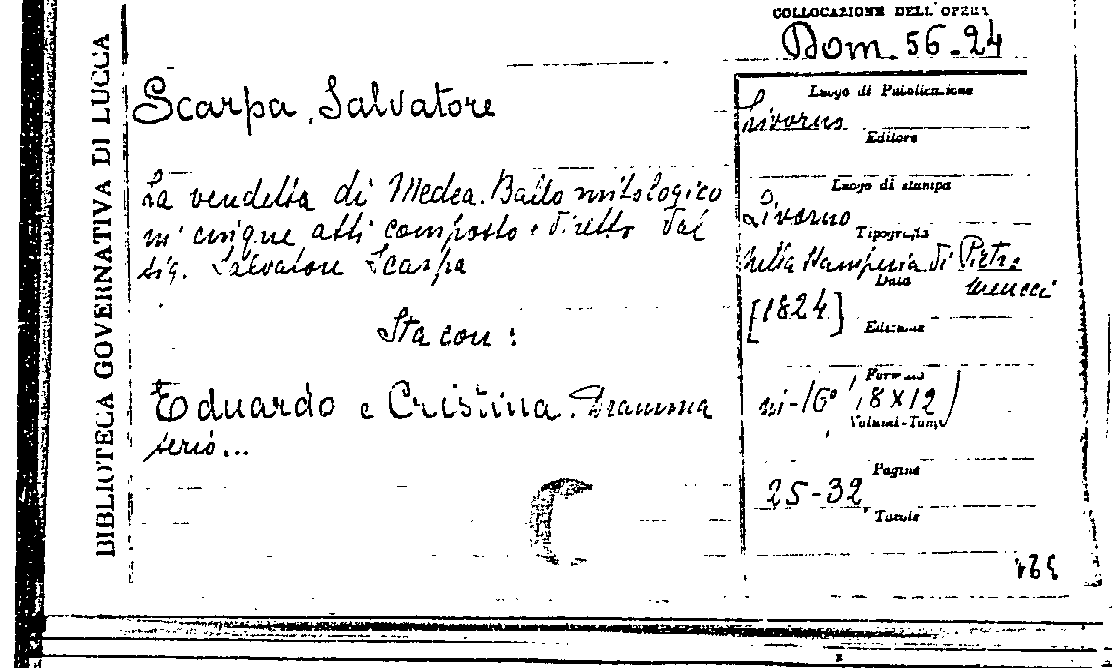 BIBLIOTECA GOVERNATIVA DI LUCCA
COLLOCAZIONE DELL'OPERA
Dom. 56-24
Scarpa, Salvatore
La vendetta di Medea. Ballo mitologico
in cinque atti composto e diretto dal
sig. Salvatore Scarpa
Sta con:
Eduardo e Cristina. Dramma
serio...
Luogo di Pubblicazione
Livorno
Editore
Luogo di stampa
Livorno
Tipografia
nella Stamperia di Pietro
Meucci
Data
[1824]
Edizione
Formato
in-16° (18x12)
Volumi-Tomi
Pagine
25-32
Tavole